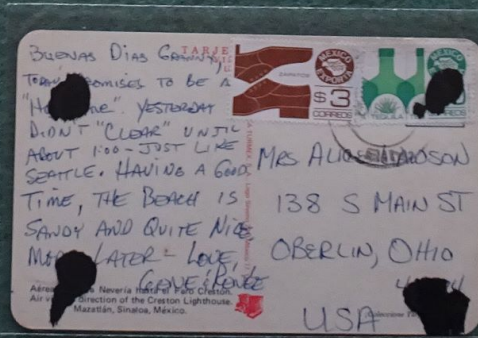 BUENAS DIAS GRANNY,
TODAY PROMISES TO BE A
YESTERDAY
DIDN'T "CLEAR" UNTIL
ABOUT 1:00 - JUST LIKE
SEATTLE. HAVING A GOOD
TIME, THE BEACH IS
SANDY AND QUITE NICE
MORE LATER - LOVE,
GENE &
TARJE
MEXICO
EXPORTA
$3
CORREOS
MEXICO
EXPORTA
TEQUILA
MRS
138 S MAIN ST
OBERLIN, OHIO
USA
Nevería hasta el Faro Creston.
Air direction of the Creston Lighthouse.
Mazatlán, Sinaloa, México.